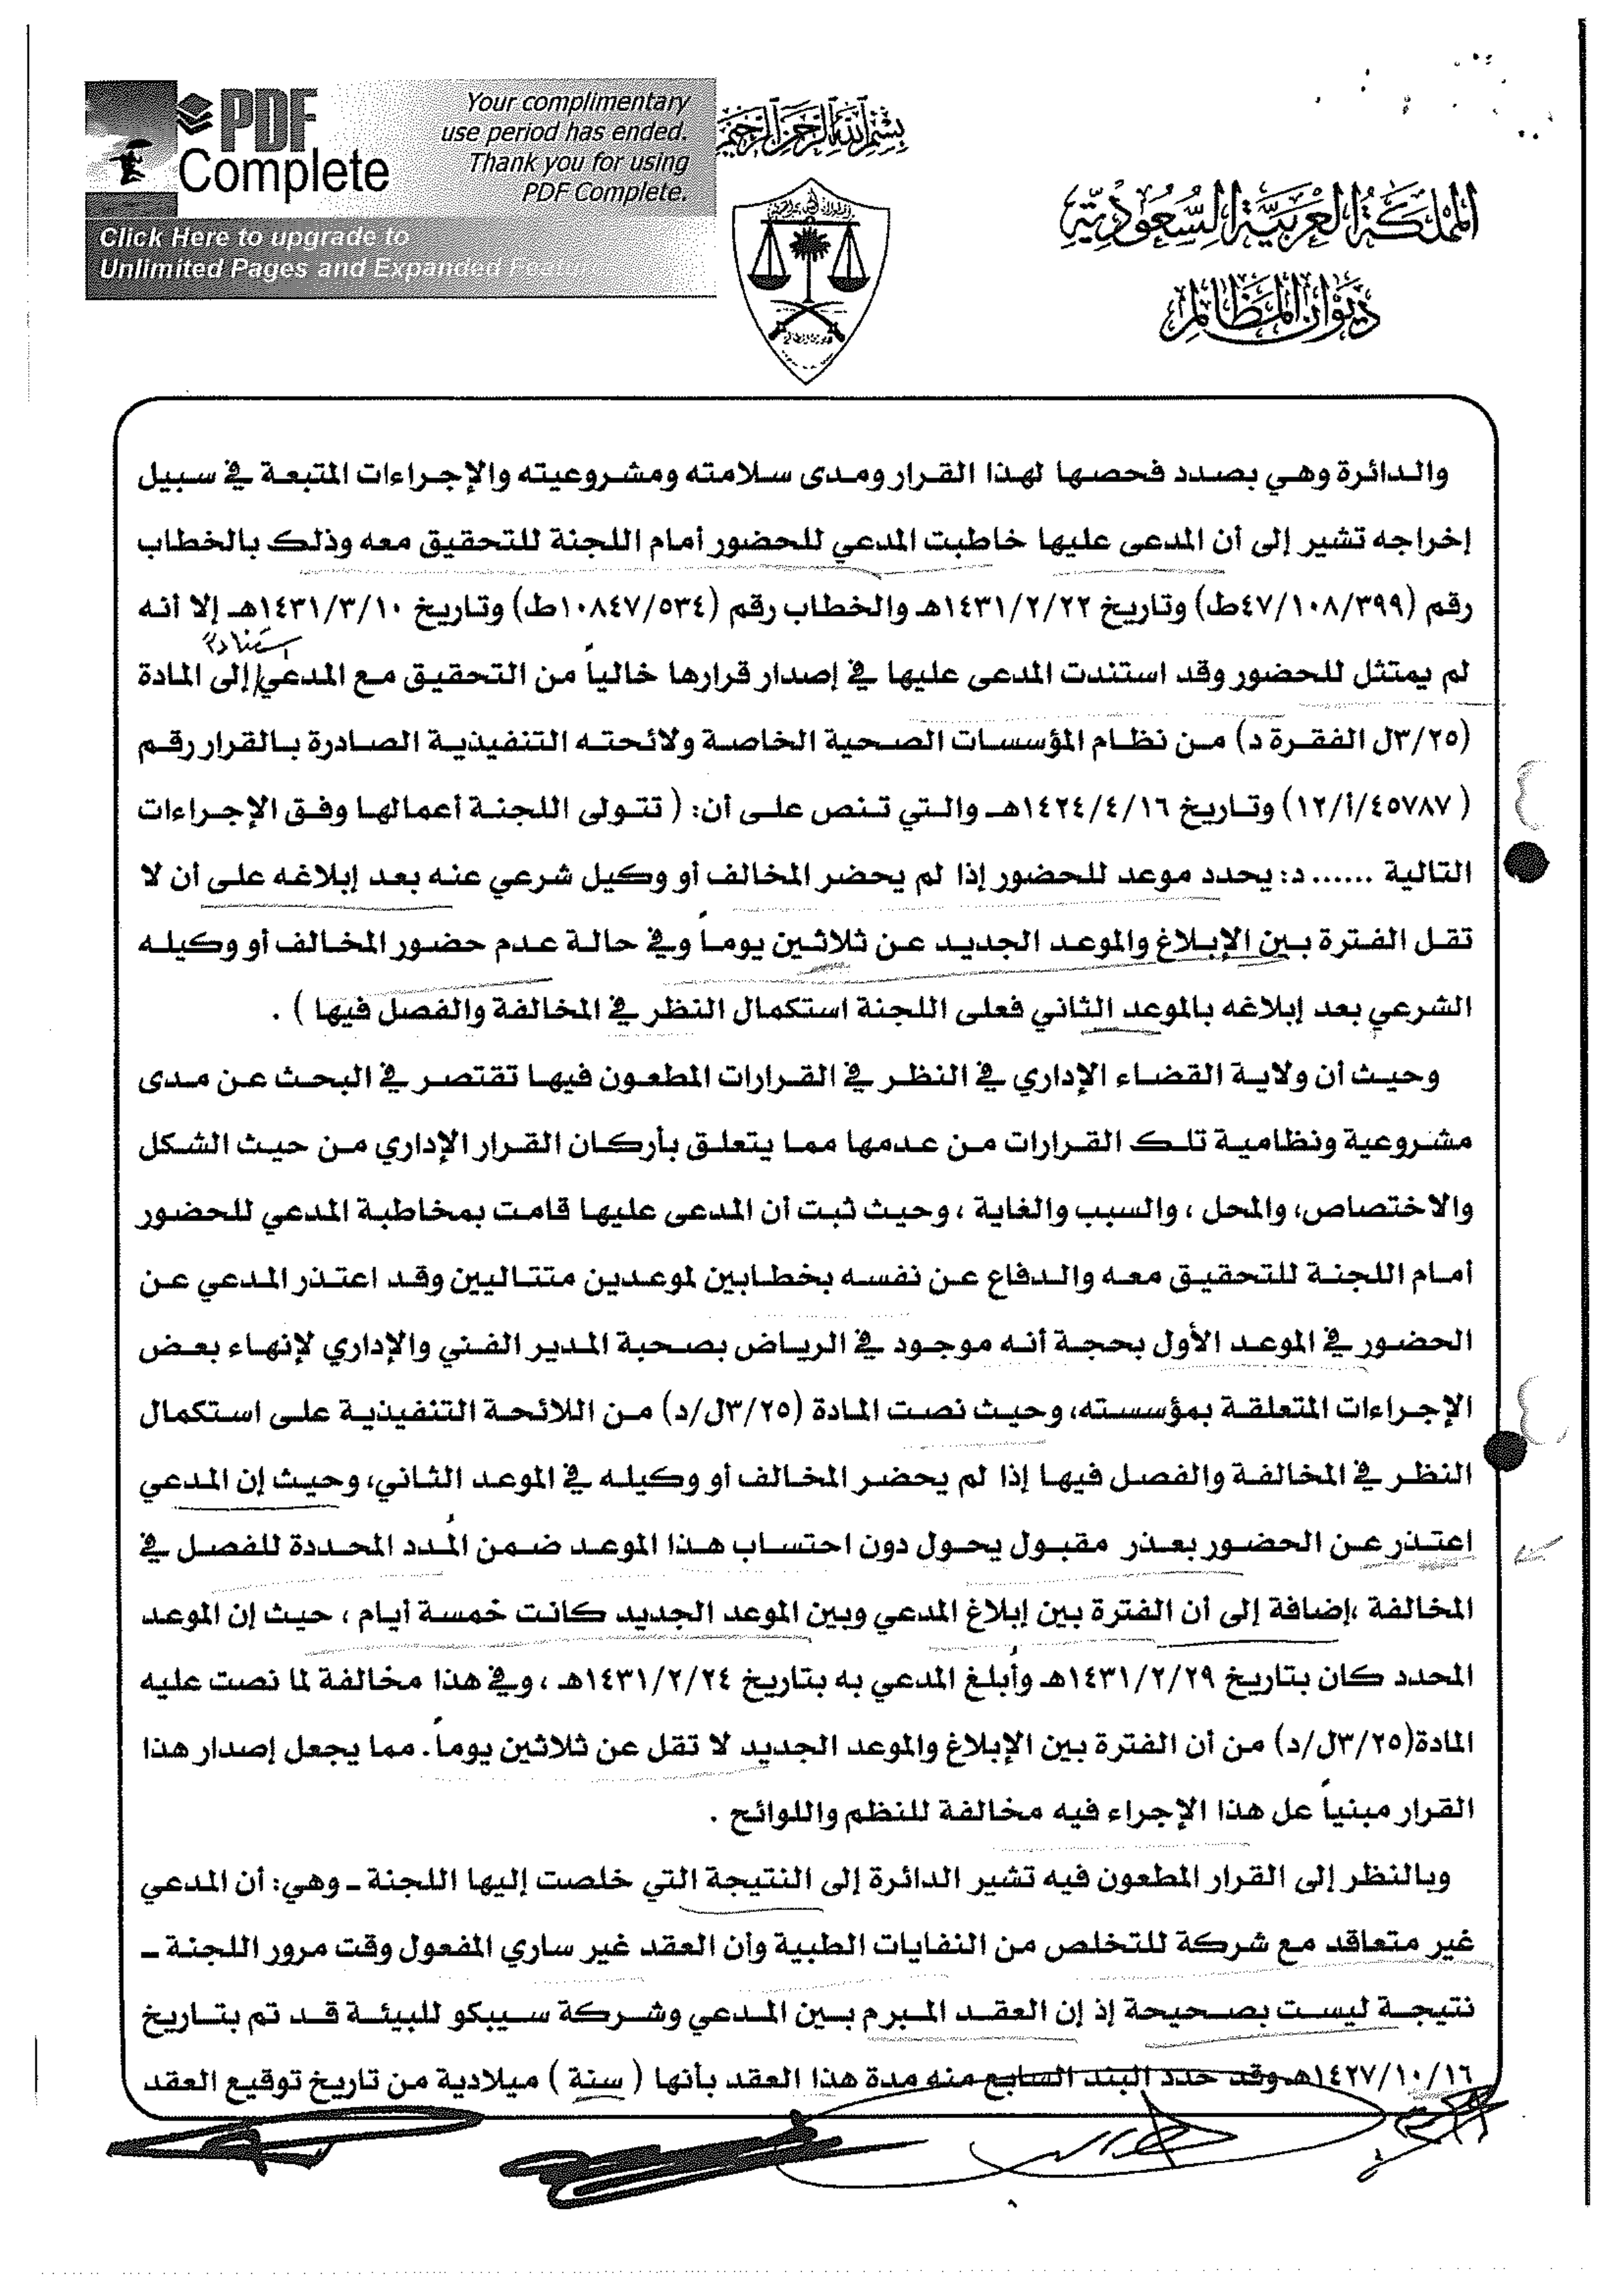 PDF Complete
Your complimentary
use period has ended.
Thank you for using
PDF Complete.
Click Here to upgrade to
Unlimited Pages and Expanded Features
بسم الله الرحمن الرحيم
المملكة العربية السعودية
ديوان المظالم
والدائرة وهي بصدد فحصها لهذا القرار ومدى سلامته ومشروعيته والإجراءات المتبعة في سبيل
إخراجه تشير إلى أن المدعى عليها خاطبت المدعي للحضور أمام اللجنة للتحقيق معه وذلك بالخطاب
رقم (٤٧/١٠٨/٣٩٩ط) وتاريخ ١٤٣١/٢/٢٢هـ والخطاب رقم (١٠٨٤٧/٥٣٤ط) وتاريخ ١٤٣١/٣/١٠هـ إلا أنه
استناداً
لم يمتثل للحضور وقد استندت المدعى عليها في إصدار قرارها خالياً من التحقيق مع المدعي/إلى المادة
(٣/٢٥ل الفقرة د) من نظام المؤسسات الصحية الخاصة ولائحته التنفيذية الصادرة بالقرار رقم
(١٢/أ/٤٥٧٨٧ ) وتاريخ ١٤٢٤/٤/١٦هـ والتي تنص على أن: ( تتولى اللجنة أعمالها وفق الإجراءات
التالية ...... د: يحدد موعد للحضور إذا لم يحضر المخالف أو وكيل شرعي عنه بعد إبلاغه على أن لا
تقل الفترة بين الإبلاغ والموعد الجديد عن ثلاثين يوماً وفي حالة عدم حضور المخالف أو وكيله
الشرعي بعد إبلاغه بالموعد الثاني فعلى اللجنة استكمال النظر في المخالفة والفصل فيها ) .
وحيث أن ولاية القضاء الإداري في النظر في القرارات المطعون فيها تقتصر في البحث عن مدى
مشروعية ونظامية تلك القرارات من عدمها مما يتعلق بأركان القرار الإداري من حيث الشكل
والاختصاص، والمحل ، والسبب والغاية ، وحيث ثبت أن المدعى عليها قامت بمخاطبة المدعي للحضور
أمام اللجنة للتحقيق معه والدفاع عن نفسه بخطابين لموعدين متتاليين وقد اعتذر المدعي عن
الحضور في الموعد الأول بحجة أنه موجود في الرياض بصحبة المدير الفني والإداري لإنهاء بعض
الإجراءات المتعلقة بمؤسسته، وحيث نصت المادة (٣/٢٥ل/د) من اللائحة التنفيذية على استكمال
النظر في المخالفة والفصل فيها إذا لم يحضر المخالف أو وكيله في الموعد الثاني، وحيث إن المدعي
اعتذر عن الحضور بعذر مقبول يحول دون احتساب هذا الموعد ضمن المُدد المحددة للفصل في
المخالفة ،إضافة إلى أن الفترة بين إبلاغ المدعي وبين الموعد الجديد كانت خمسة أيام ، حيث إن الموعد
المحدد كان بتاريخ ١٤٣١/٢/٢٩هـ وأُبلغ المدعي به بتاريخ ١٤٣١/٢/٢٤هـ ، وفي هذا مخالفة لما نصت عليه
المادة(٣/٢٥ل/د) من أن الفترة بين الإبلاغ والموعد الجديد لا تقل عن ثلاثين يوماً. مما يجعل إصدار هذا
القرار مبنياً عل هذا الإجراء فيه مخالفة للنظم واللوائح .
وبالنظر إلى القرار المطعون فيه تشير الدائرة إلى النتيجة التي خلصت إليها اللجنة ـ وهي: أن المدعي
غير متعاقد مع شركة للتخلص من النفايات الطبية وأن العقد غير ساري المفعول وقت مرور اللجنة ـ
نتيجة ليست بصحيحة إذ إن العقد المبرم بين المدعي وشركة سيبكو للبيئة قد تم بتاريخ
١٤٢٧/١٠/١٦هـ وقد حدد البند السابع منه مدة هذا العقد بأنها ( سنة ) ميلادية من تاريخ توقيع العقد